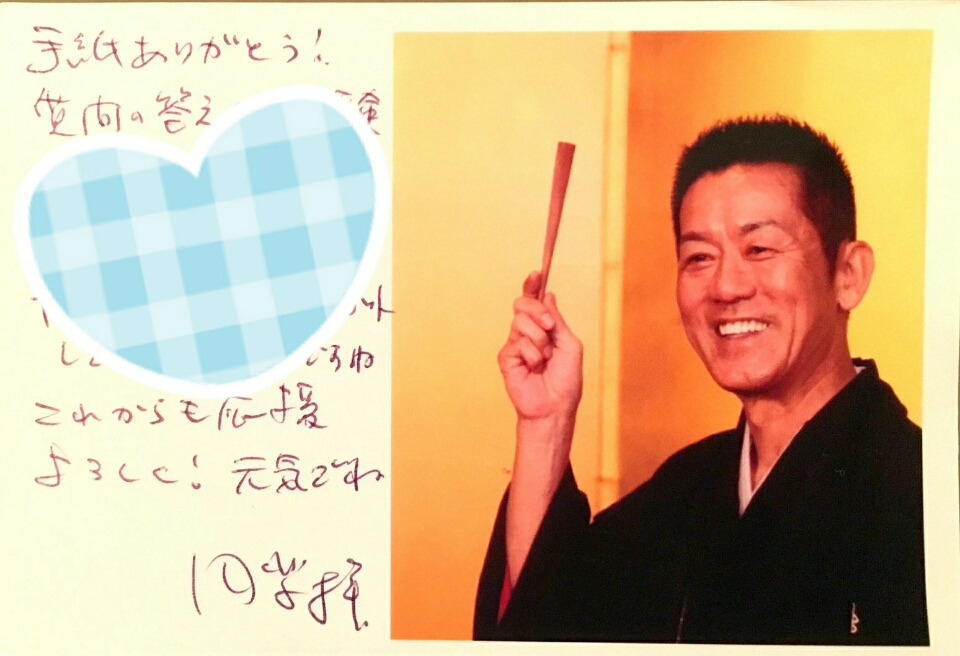 手紙ありがとう!
質問の答え 験
外
し すね
これからも応援
よろしく! 元気でね